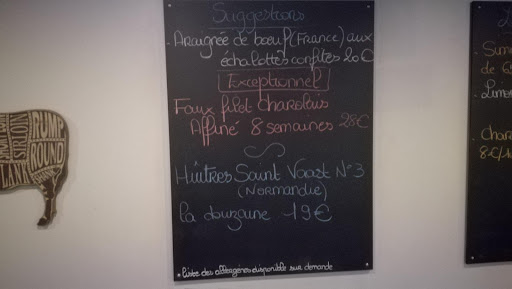 Suggestions
. Araignée de bœuf (France) aux
échalottes confites 20€
Exceptionnel
Faux filet charolais
Affiné 8 semaines 28€
Huîtres Saint Vaast N°3
(Normandie)
la douzaine 19€
* liste des allergènes disponible sur demande
SIRLOIN
RUMP
ROUND